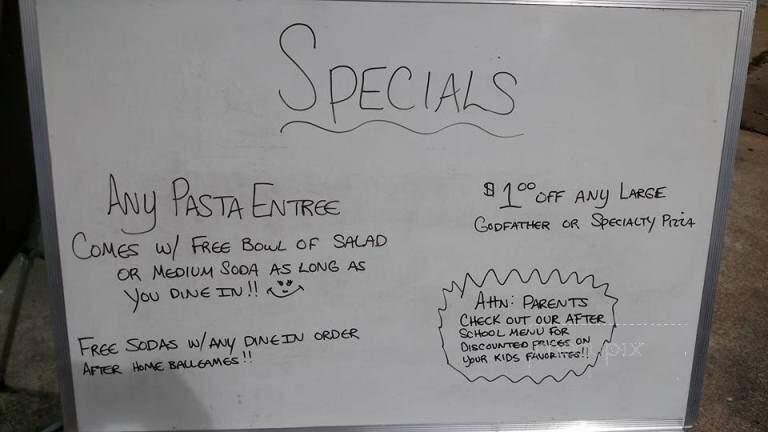 SPECIALS
ANY PASTA ENTREE
COMES W/ FREE BOWL OF SALAD
OR MEDIUM SODA AS LONG AS
YOU DINE IN!!
FREE SODAS W/ANY DINE IN ORDER
AFTER HOME BALLGAMES!!
$1.00 OFF ANY LARGE
GODFATHER OR SPECIALTY PIZZA
Attn: PARENTS
CHECK OUT OUR AFTER
SCHOOL MENU FOR
DISCOUNTED PRICES ON
YOUR KIDS FAVORITES!!